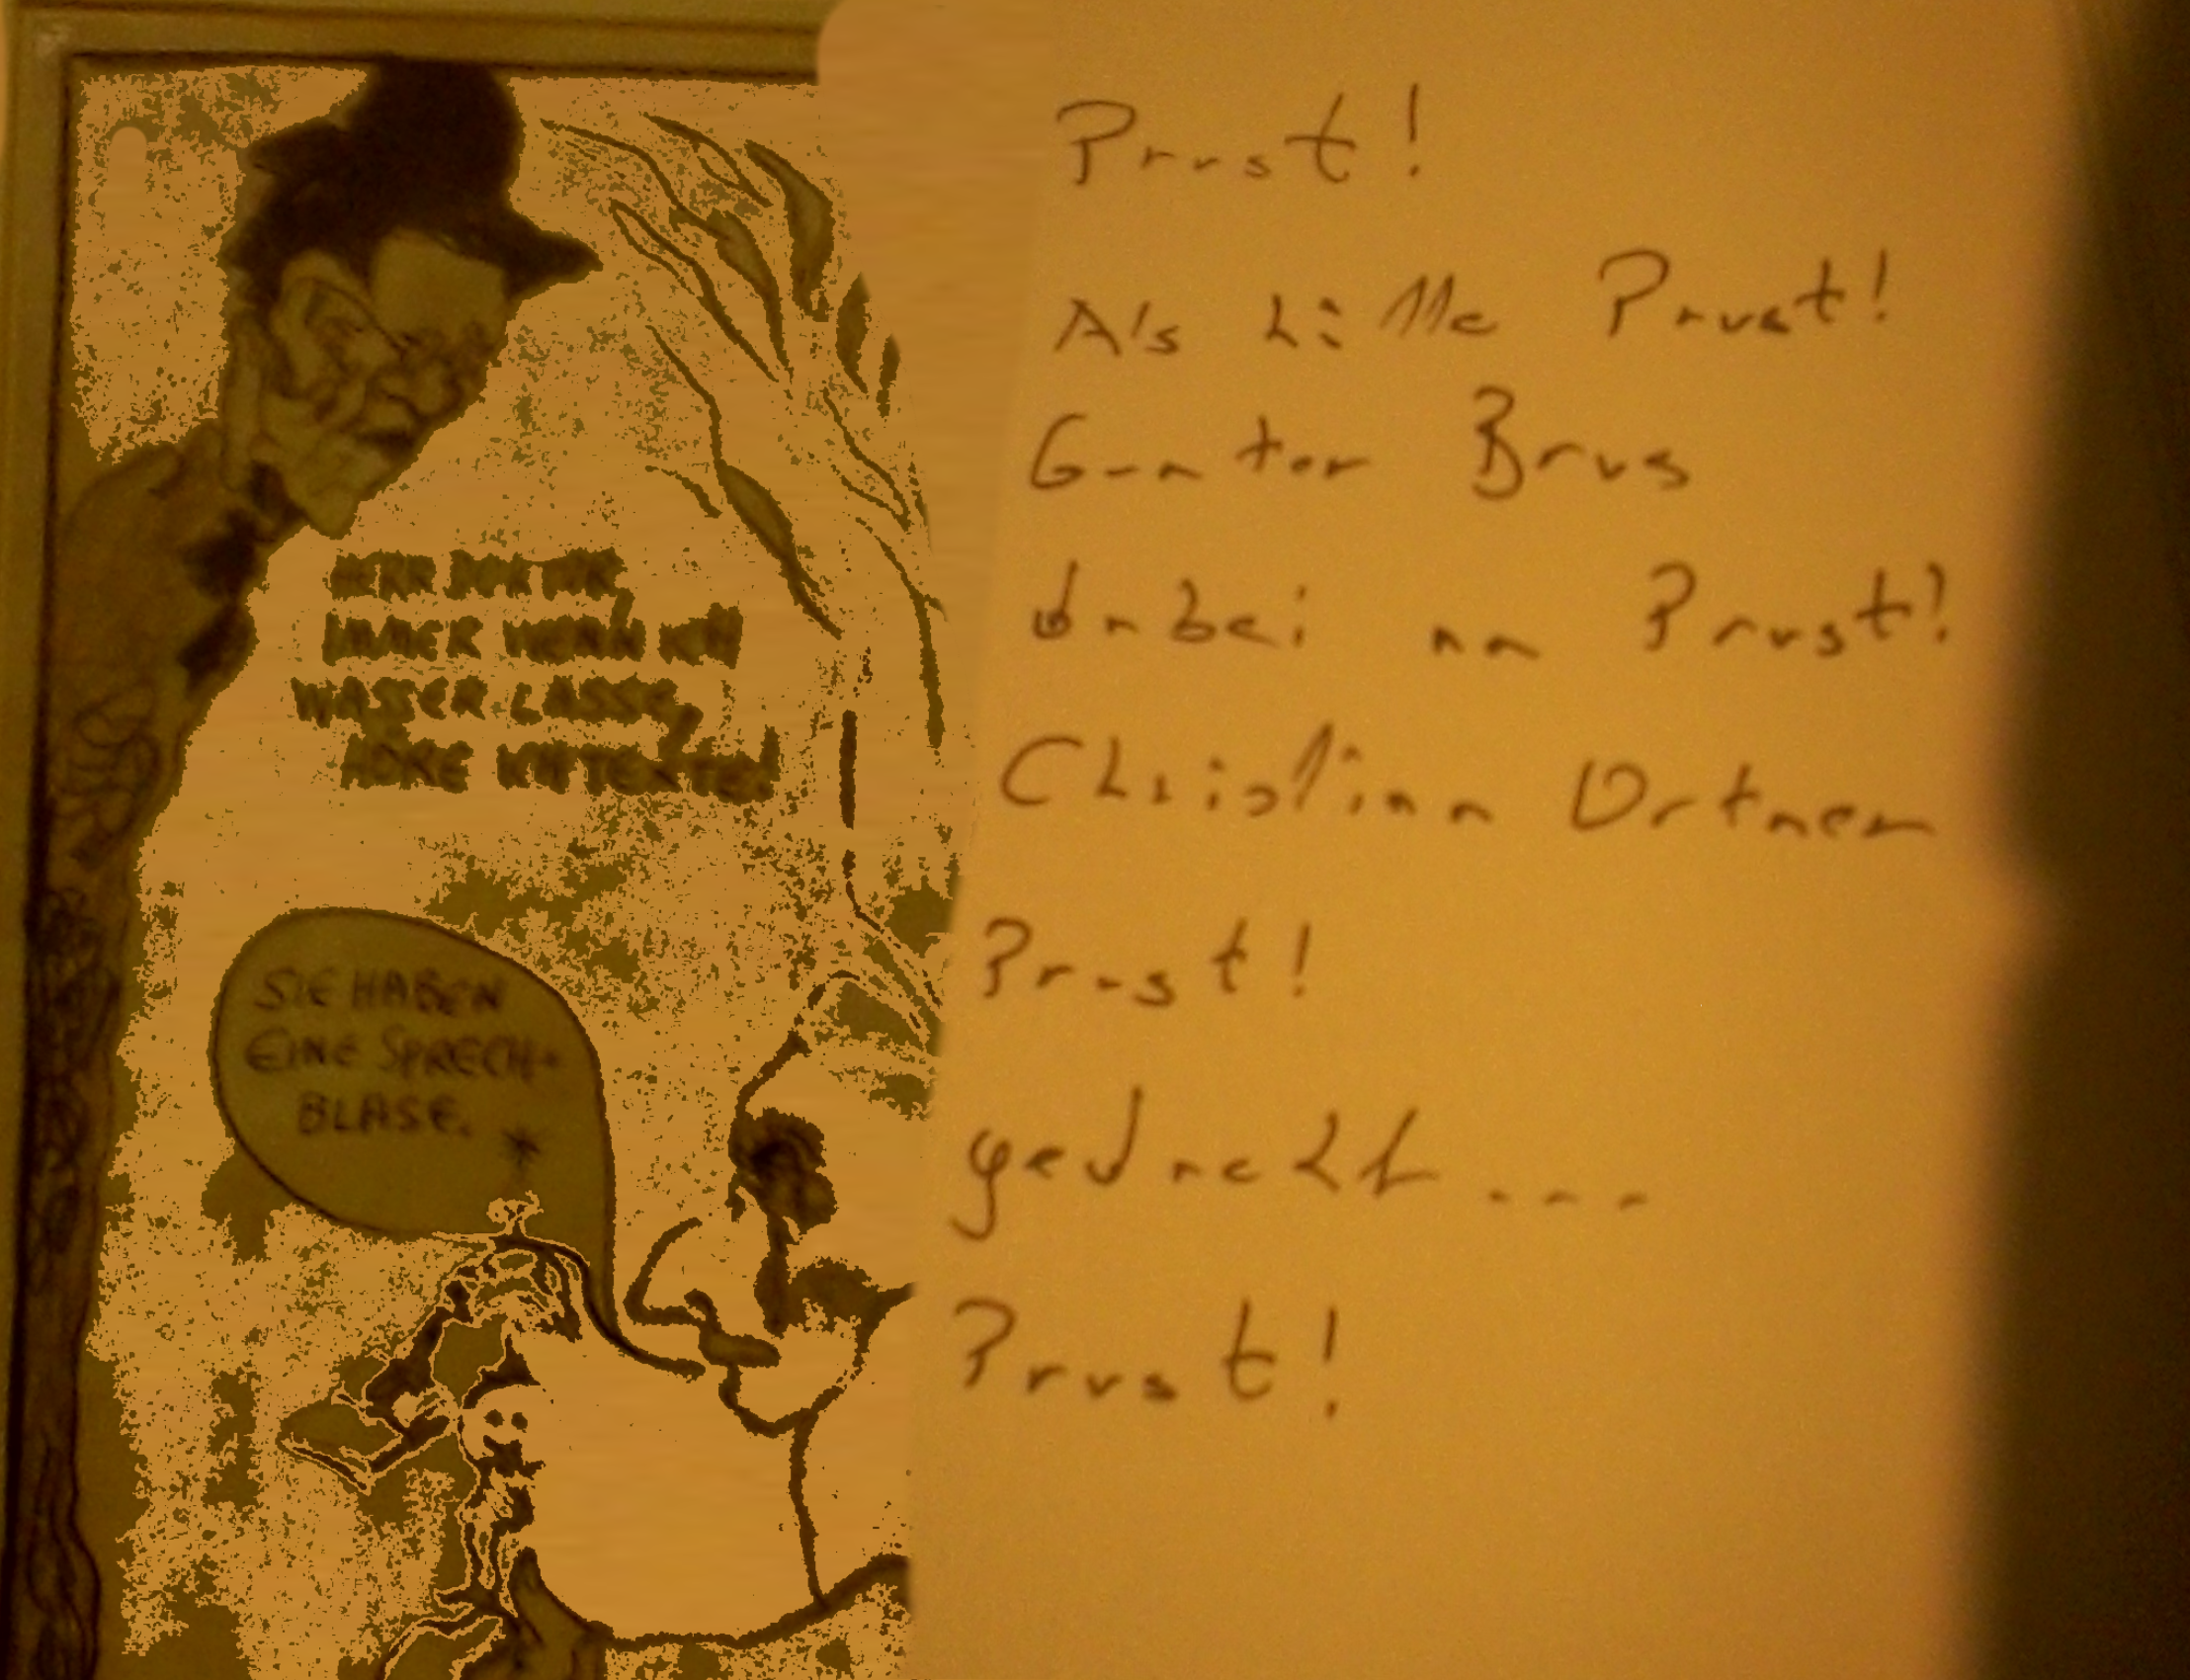 HERR DOKTOR,
IMMER WENN ICH
WASSER LASSE,
HÖRE ICH TEXTE!
SIE HABEN
EINE SPRECH-
BLASE.
Prust!
Als Prust!
Gunter Brus
dabei an Prust!
Christian Ortner
Prust!
gedacht...
Prust!